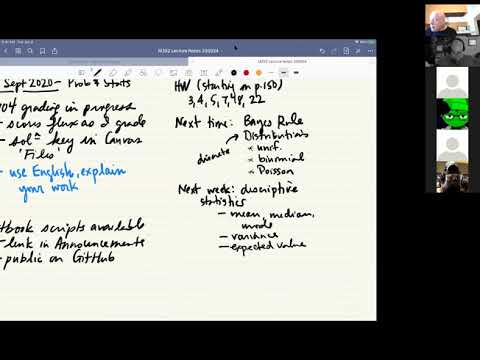 M302 Lecture Notes 200924
Sept 2020 - Prob & Stats
04 grading in progress
- scores flux as I grade
- sol= key in Canvas
'Files'
- use English, explain
your work
tbook scripts available
- link in Announcements
- public on GitHub
HW (starting on p.150)
3, 4, 5, 7, 48, 22
Next time: Bayes Rule
Distributions
discrete
* unif.
* binomial
* Poisson
Next week: descriptive
statistics
- mean, median,
mode
- variance
- expected value